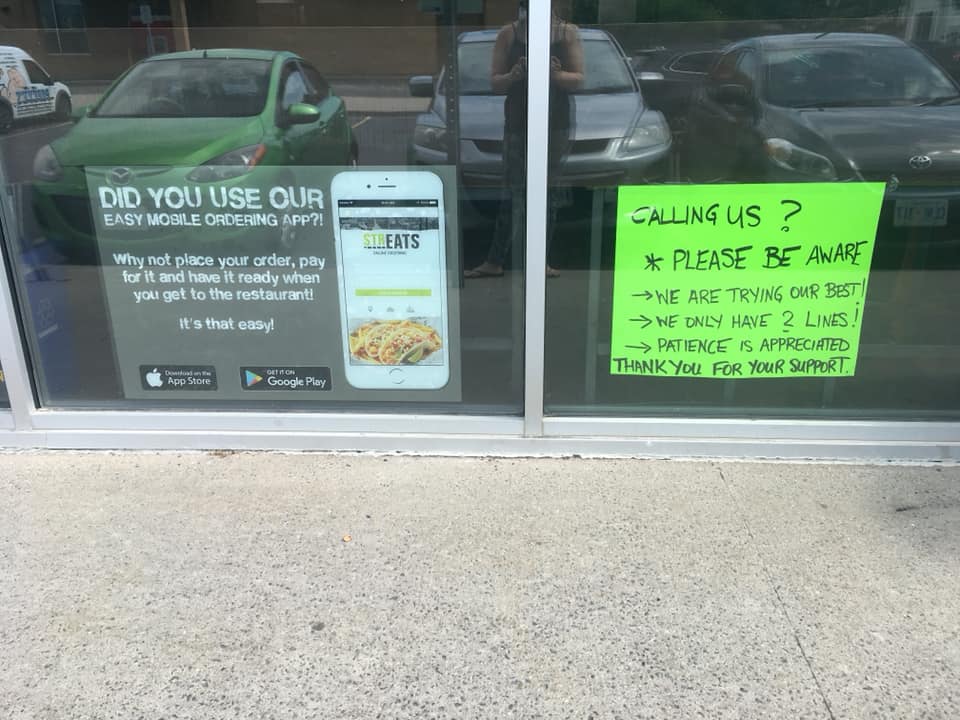 DID YOU USE OUR
EASY MOBILE ORDERING APP?!
Why not place your order, pay
for it and have it ready when
you get to the restaurant!
It's that easy!
Download on the
App Store
GET IT ON
Google Play
STREATS
CALLING US ?
* PLEASE BE AWARE
→ WE ARE TRYING OUR BEST!
→ WE ONLY HAVE 2 LINES!
→ PATIENCE IS APPRECIATED
THANK YOU FOR YOUR SUPPORT.